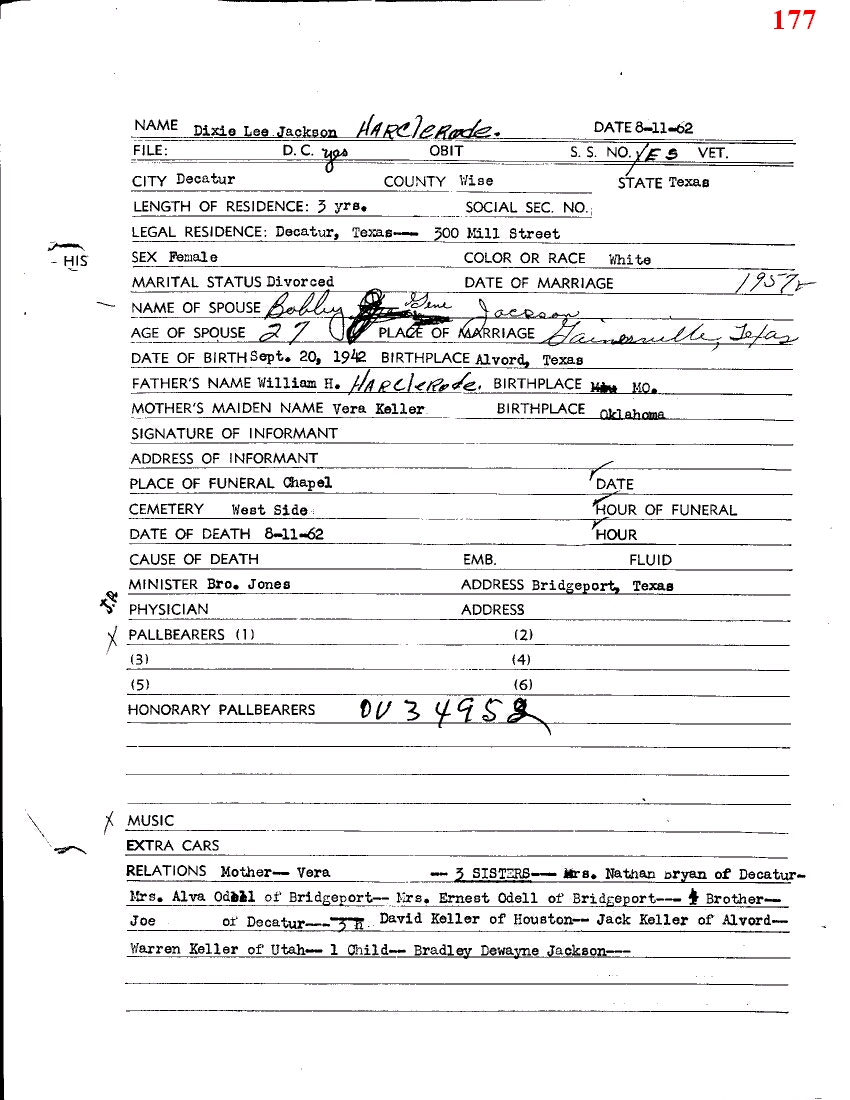 177
NAME Dixie Lee Jackson HARClERode. DATE 8-11-62
FILE: D.C. yes OBIT S. S. NO. YES VET.
CITY Decatur COUNTY Wise STATE Texas
LENGTH OF RESIDENCE: 3 yrs. SOCIAL SEC. NO.
LEGAL RESIDENCE: Decatur, Texas-- 300 Mill Street
- HIS
SEX Female COLOR OR RACE White
MARITAL STATUS Divorced DATE OF MARRIAGE 1957
NAME OF SPOUSE Bobby Gene Jackson
AGE OF SPOUSE 27 PLACE OF MARRIAGE Gainesville, Texas
DATE OF BIRTH Sept. 20, 1942 BIRTHPLACE Alvord, Texas
FATHER'S NAME William H. HARClERode. BIRTHPLACE MO.
MOTHER'S MAIDEN NAME Vera Keller BIRTHPLACE Oklahoma
SIGNATURE OF INFORMANT
ADDRESS OF INFORMANT
PLACE OF FUNERAL Chapel DATE
CEMETERY West Side HOUR OF FUNERAL
DATE OF DEATH 8-11-62 HOUR
CAUSE OF DEATH EMB. FLUID
MINISTER Bro. Jones ADDRESS Bridgeport, Texas
PHYSICIAN ADDRESS
PALLBEARERS (1) (2)
(3) (4)
(5) (6)
HONORARY PALLBEARERS
MUSIC
EXTRA CARS
RELATIONS Mother-- Vera -- 3 SISTERS-- Mrs. Nathan Bryan of Decatur-
Mrs. Alva Odell of Bridgeport-- Mrs. Ernest Odell of Bridgeport--- Brother--
Joe of Decatur--- David Keller of Houston-- Jack Keller of Alvord--
Warren Keller of Utah-- 1 Child-- Bradley Dewayne Jackson---